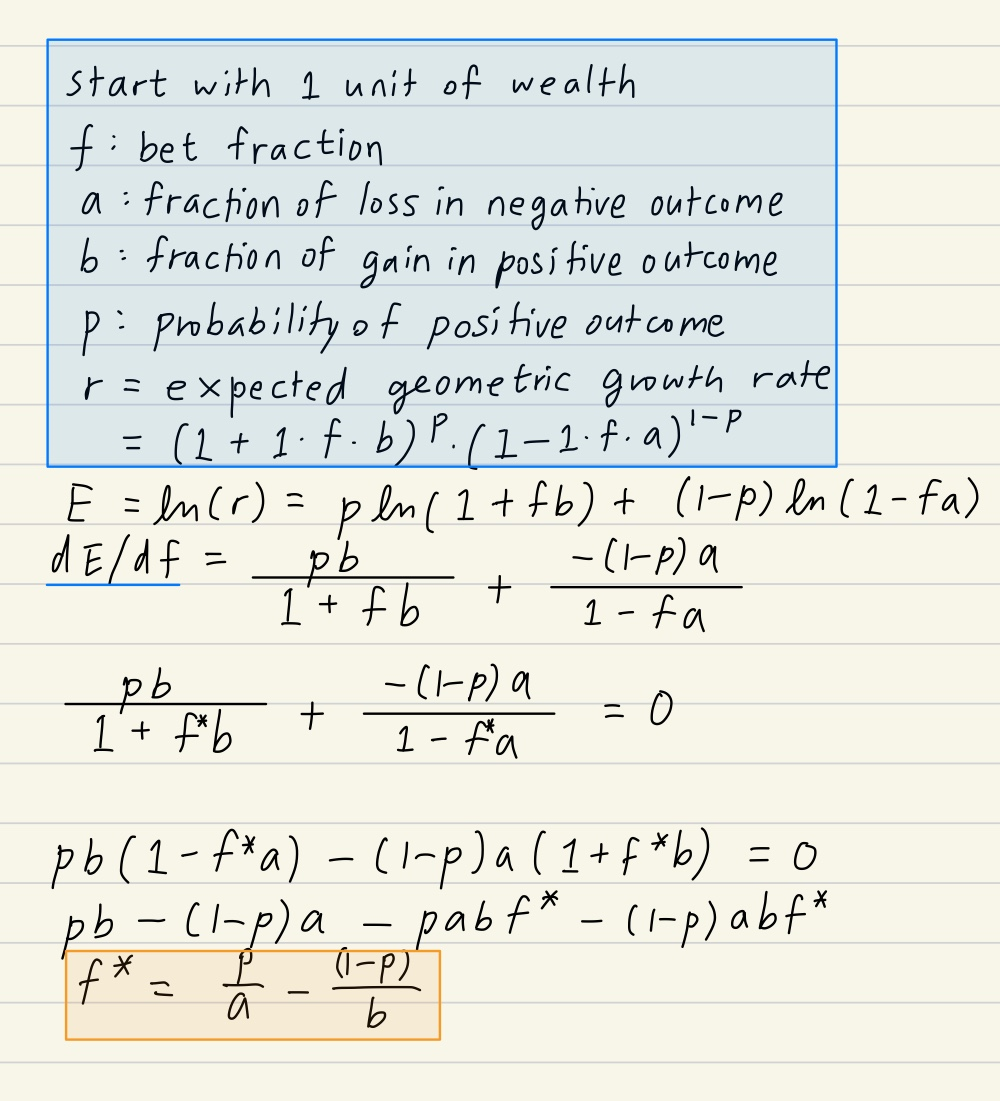 Start with 1 unit of wealth
f : bet fraction
a : fraction of loss in negative outcome
b : fraction of gain in positive outcome
p : probability of positive outcome
r = expected geometric growth rate
= (1 + 1·f·b)^p·(1-1·f·a)^1-p
E = ln(r) = p ln(1 + fb) + (1-p) ln(1 - fa)
dE/df = pb / 1 + fb + -(1-p) a / 1 - fa
pb / 1 + f*b + -(1-p) a / 1 - f*a = 0
pb(1 - f*a) - (1-p)a(1+f*b) = 0
pb - (1-p)a - pabf* - (1-p)abf*
f* = p/a - (1-p)/b